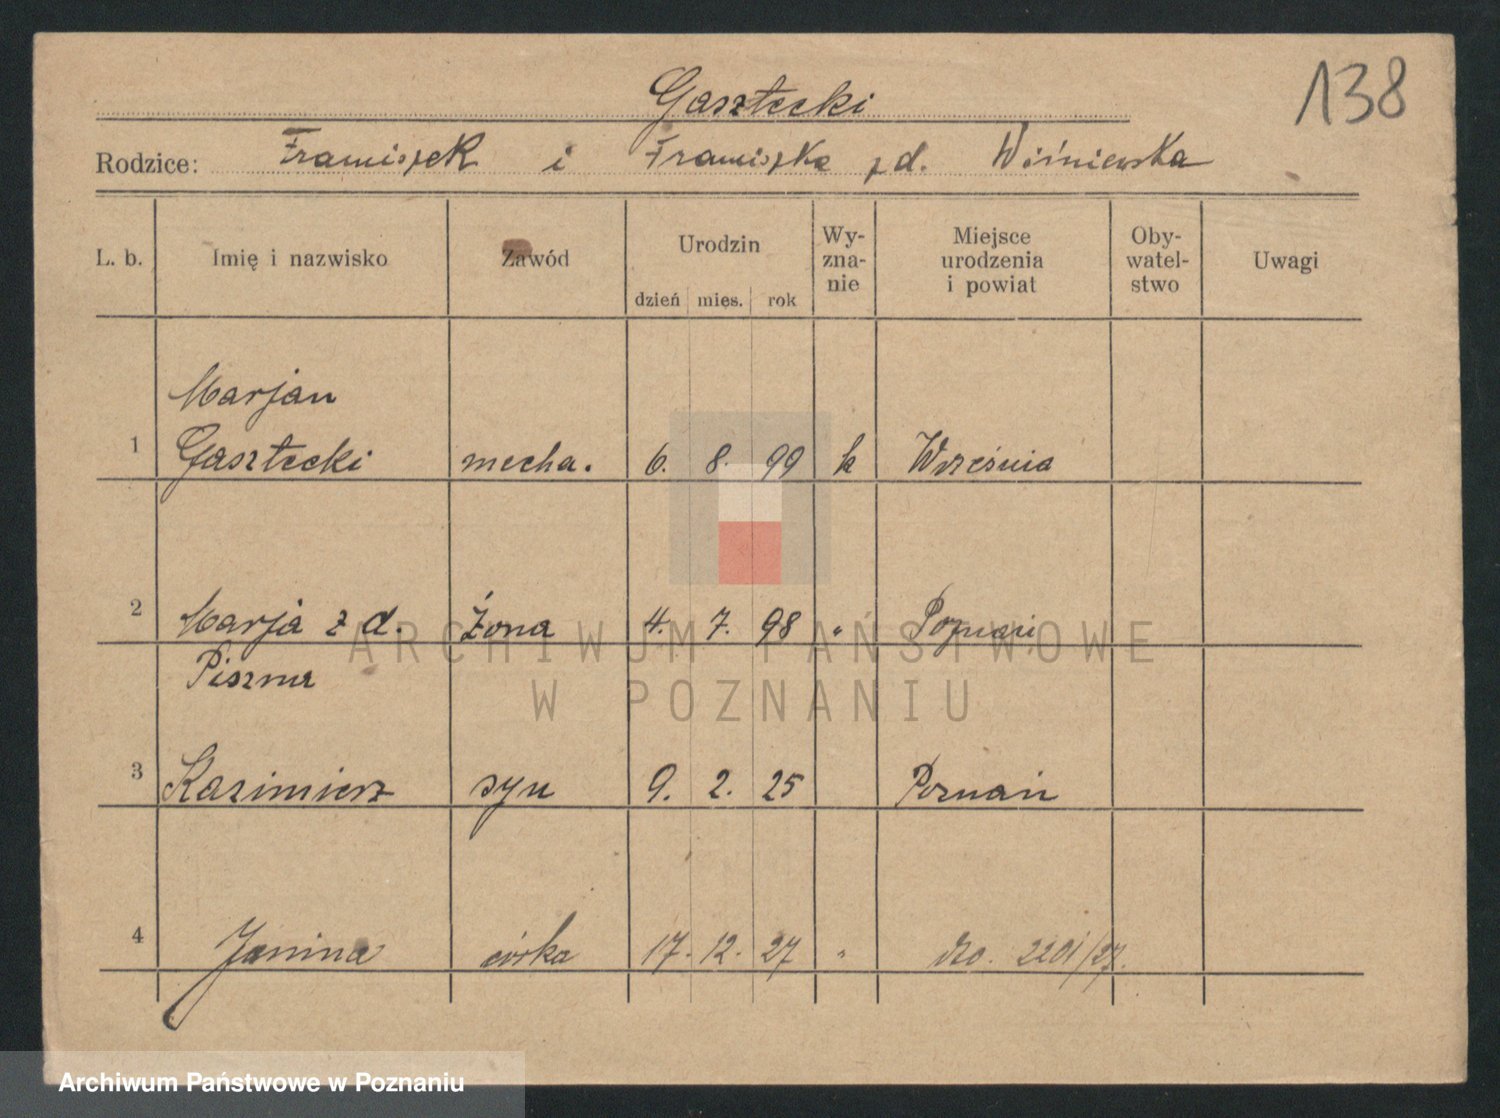 138
Gasztecki
Rodzice: Franciszek i Franciszka z d. Wiśniewska
L. b. Imię i nazwisko Zawód Urodzin dzień mies. rok Wy-zna-nie Miejsce urodzenia i powiat Oby-watel-stwo Uwagi
Marjan
1 Gasztecki mecha. 6. 8. 99 k Września
2 Marja z d. Żona 4. 7. 98 " Poznań
ARCHIWUM PAŃSTWOWE
Piszma
W POZNANIU
3 Kazimierz syn 9. 2. 25 Poznań
4 Janina córka 17. 12. 27 " 2201/27.
Archiwum Państwowe w Poznaniu